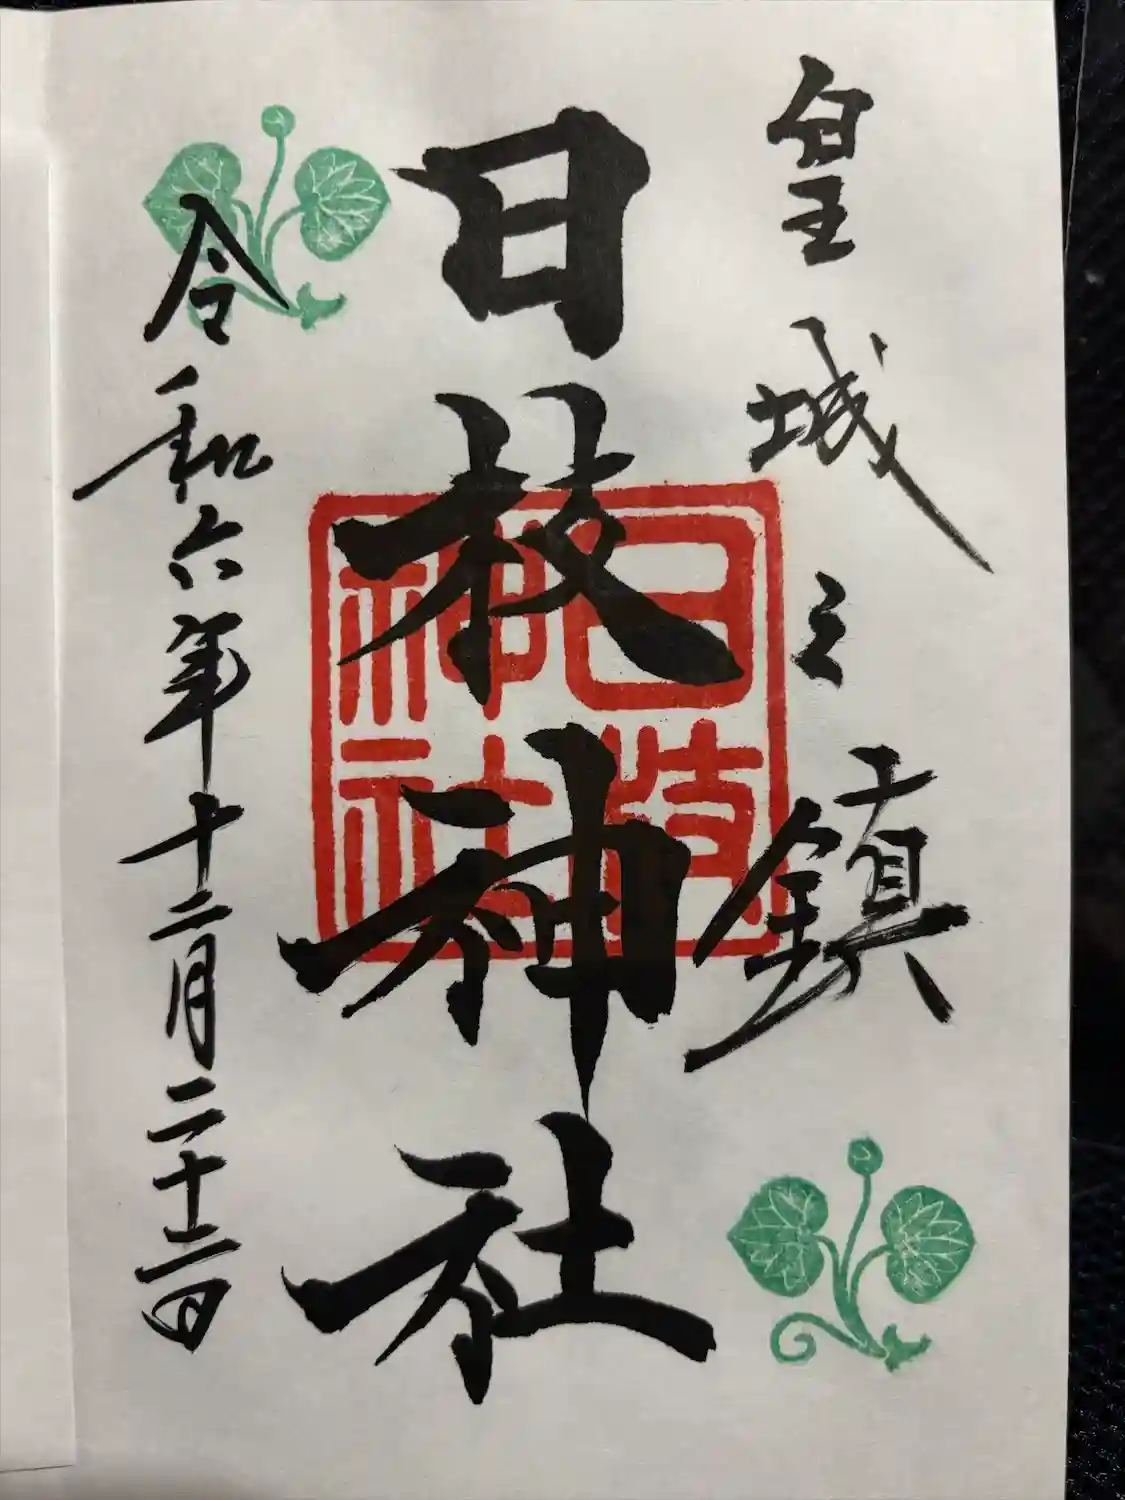 皇城之鎮
日枝神社
日枝
神社
令和六年十二月二十二日